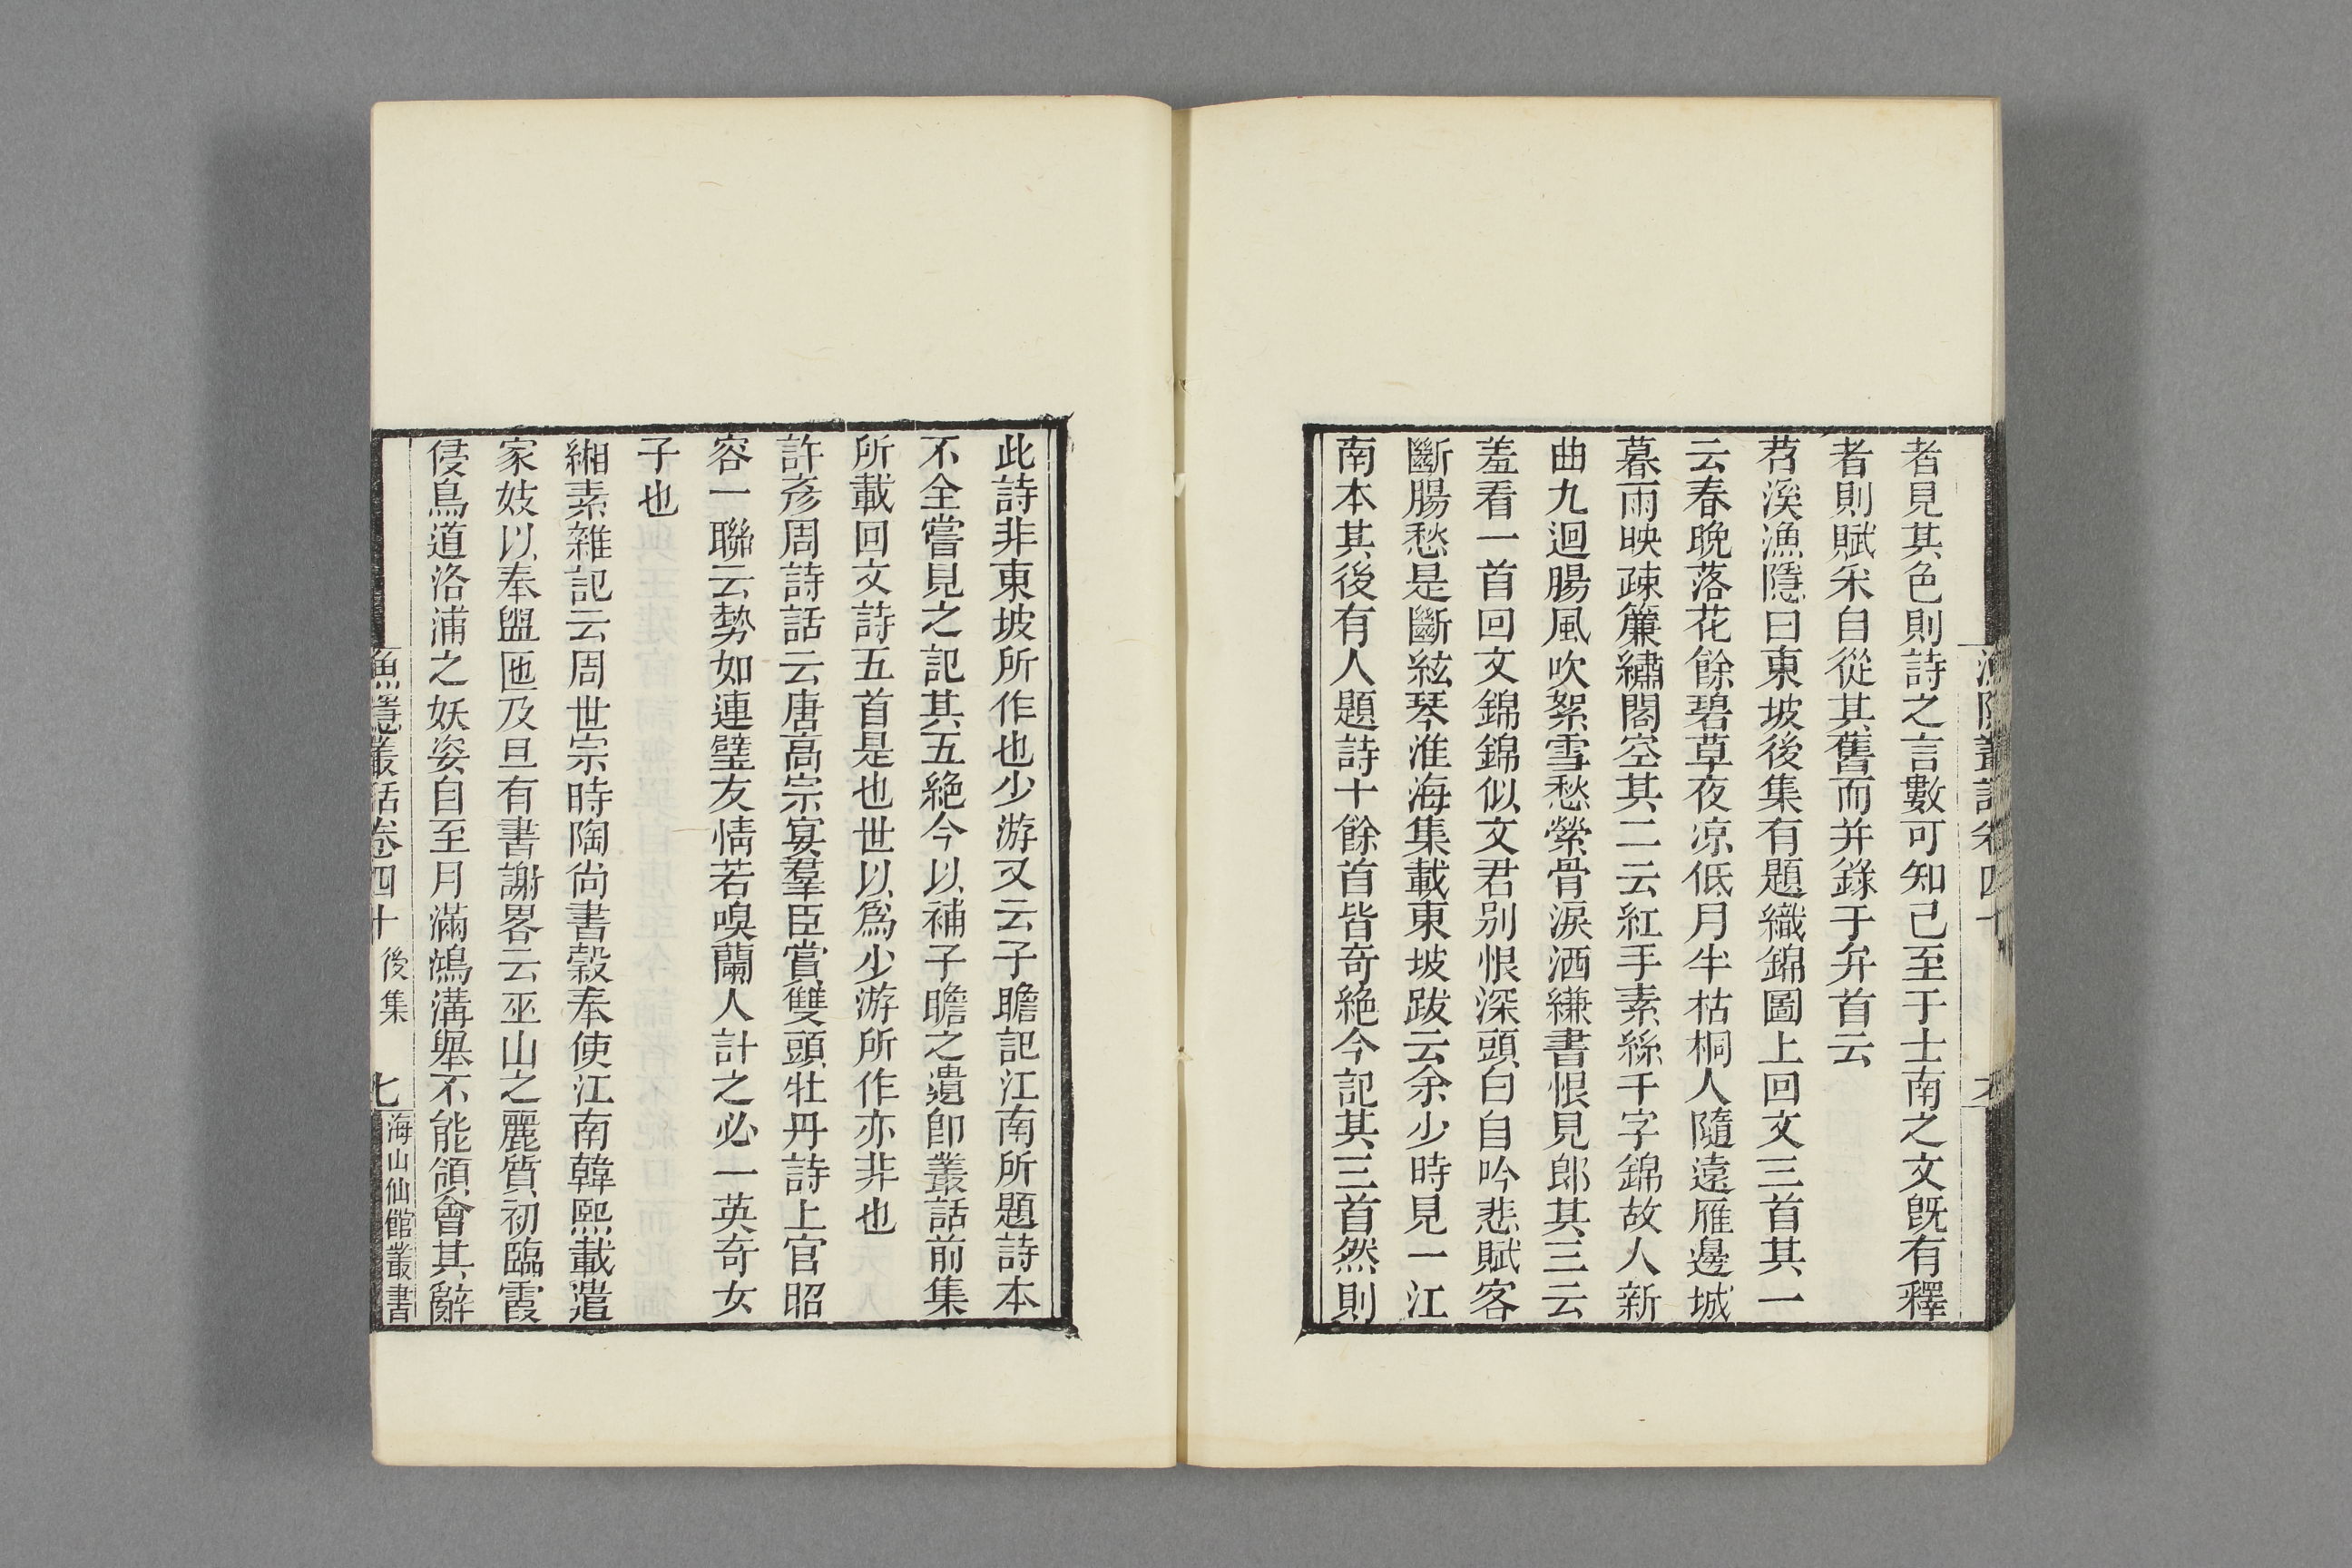 者見其色則詩之言數可知己至于士南之文旣有釋
者則賦釆自從其舊而并錄于弁首云
苕溪漁隱曰東坡後集有題織錦圖上回文三首其一
云春晚落花餘碧草夜凉低月半枯桐人隨遠雁邊城
暮雨映疎簾繡閣空其二云紅手素絲千字錦故人新
曲九迴腸風吹絮雪愁縈骨淚洒縑書恨見郎其三云
羞看一首回文錦錦似文君别恨深頭白自吟悲賦客
斷腸愁是斷絃琴淮海集載東坡跋云余少時見一江
南本其後有人題詩十餘首皆奇絶今記其三首然則
此詩非東坡所作也少游又云子瞻記江南所題詩本
不全嘗見之記其五絶今以補子瞻之遺卽叢話前集
所載回文詩五首是也世以爲少游所作亦非也
許彦周詩話云唐高宗宴羣臣賞雙頭牡丹詩上官昭
容一聯云勢如連璧友情若嗅蘭人計之必一英奇女
子也
緗素雜記云周世宗時陶尙書穀奉使江南韓熙載遣
家妓以奉盥匜及旦有書謝畧云巫山之麗質初臨霞
侵鳥道洛浦之妖姿自至月滿鴻溝舉不能領會其辭
漁隱叢話卷四十 後集 七 海山仙館叢書